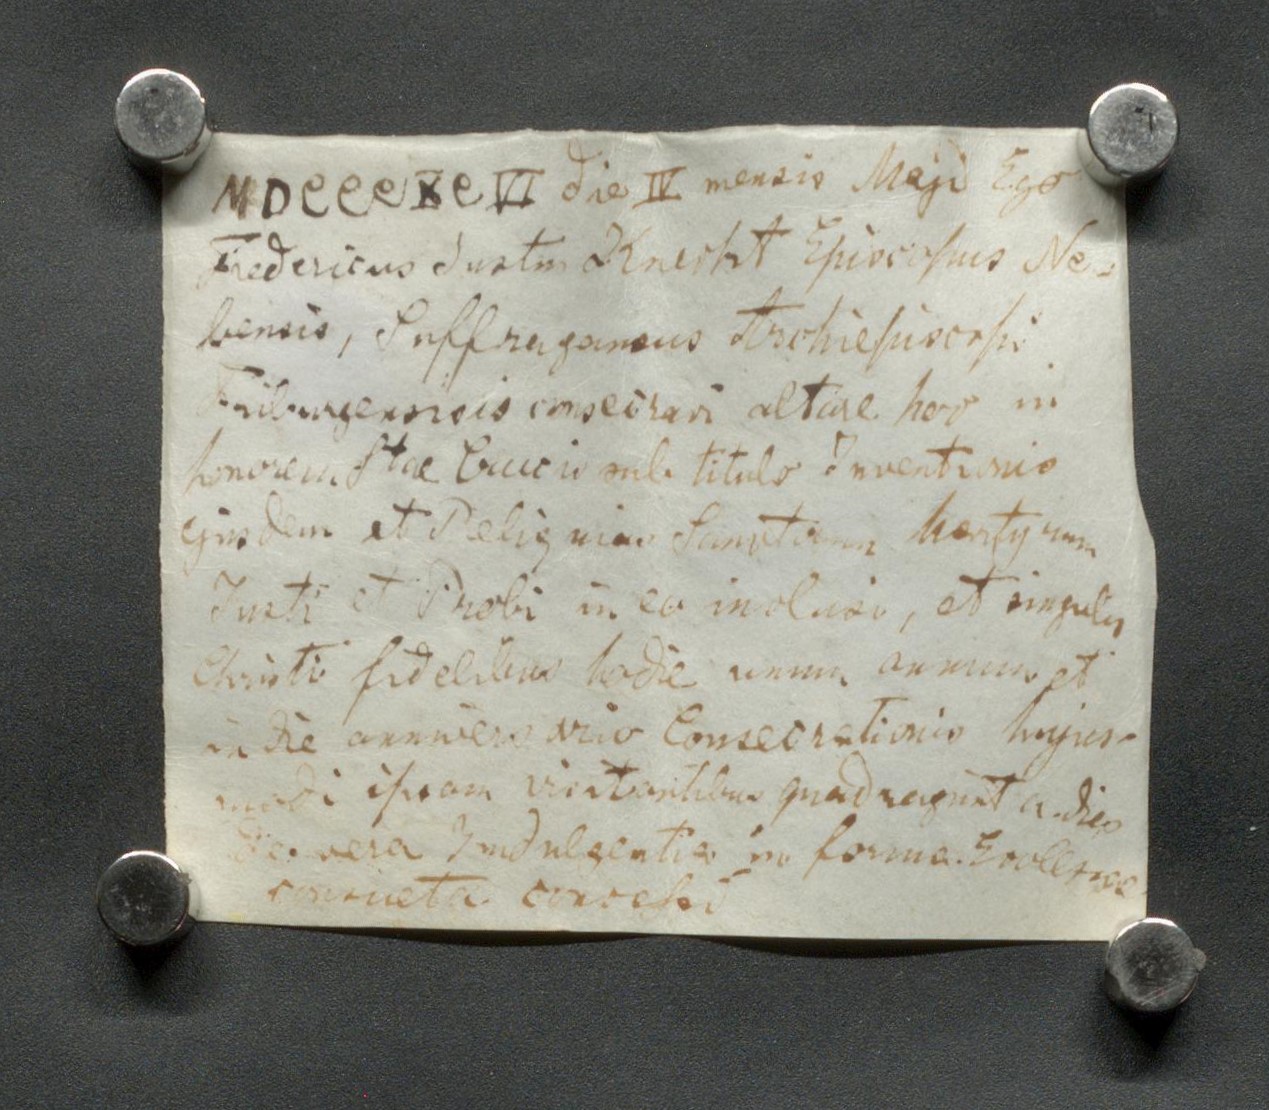 MDCCCXCVI die IV mensis Maji Ego
Fredericus Justus Knecht Episcopus Ne-
bensis, Suffraganeus Archiepiscopi
Friburgensis consecravi altare hoc in
honorem Stae Crucis sub titulo Inventionis
ejusdem et Reliquias Sanctorum Martyrum
Justi et Probi in eo inclusi, et singulis
Christi fidelibus hodie unum annum et
in die anniversario Consecrationis hujus-
modi ipsam visitantibus quadraginta dies
de vera Indulgentia in forma Ecclesiae
consueta concessi